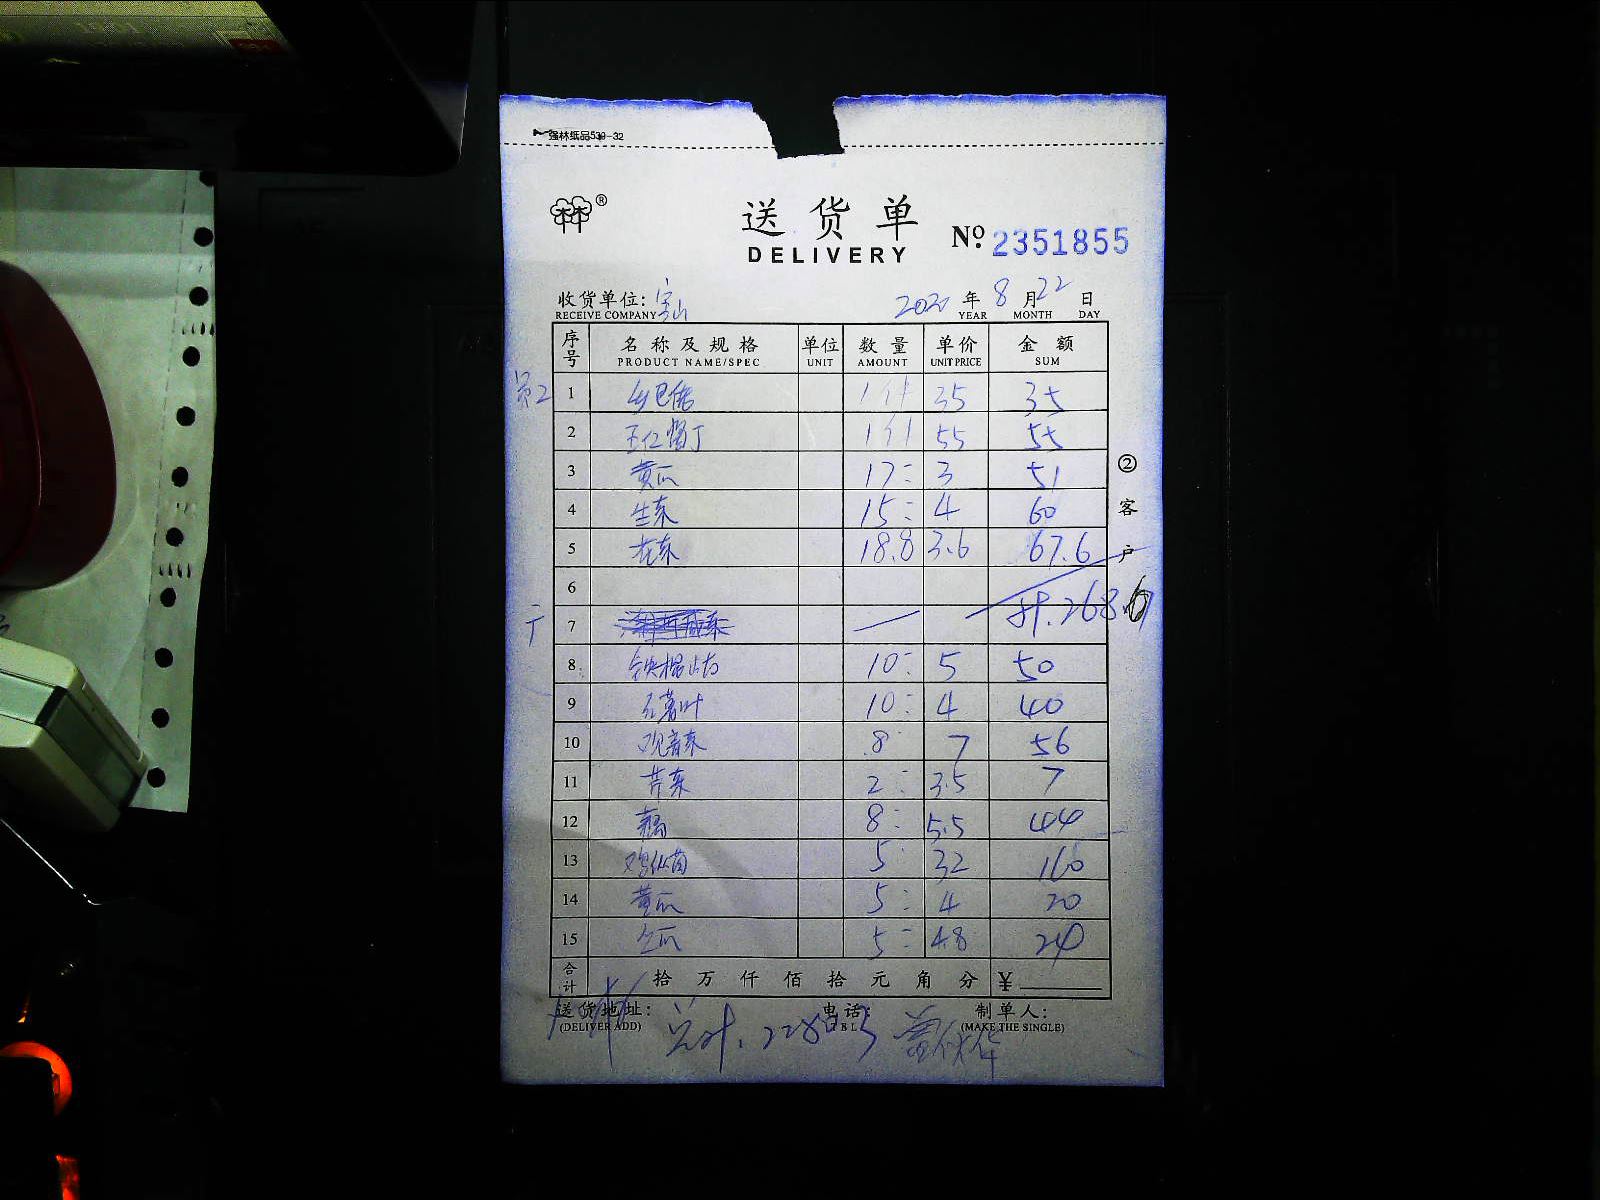 强林纸品539-32
®
送货单
DELIVERY
№ 2351855
收货单位: 宝山 2020 年 8 月 22 日
RECEIVE COMPANY YEAR MONTH DAY
序号 名称及规格 单位 数量 单价 金额
PRODUCT NAME/SPEC UNIT AMOUNT UNIT PRICE SUM
1 35 35
2 55 55
3 黄瓜 17 3 51
4 生菜 15 4 60
5 花菜 18.8 3.6 67.6
6
计.268.6
7
8 铁棍山药 10 5 50
9 红薯叶 10 4 40
10 观音菜 8 7 56
11 芹菜 2 3.5 7
12 藕 8 5.5 44
13 鸡枞菌 5 32 160
14 黄瓜 5 4 20
15 5 4.8 24
合计 拾 万 仟 佰 拾 元 角 分 ¥
送货地址: 电话: 制单人:
(DELIVER ADD) (MAKE THE SINGLE)
②客户